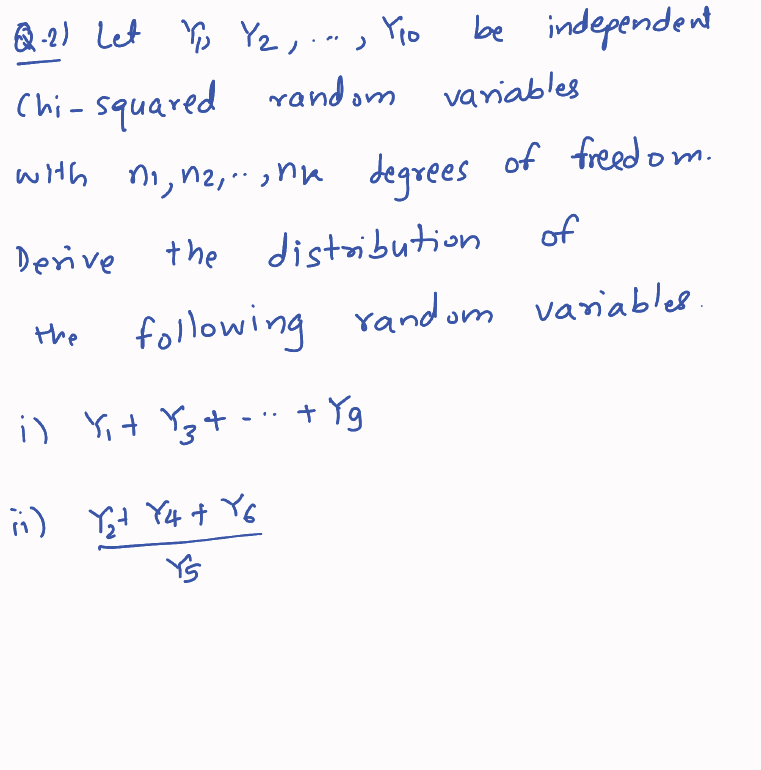 Q-2) Let Y₁, Y₂, ..., Y₁₀ be independent
Chi-squared random variables
with n₁, n₂, .., nₖ degrees of freedom.
Derive the distribution of
the following random variables.
i) Y₁ + Y₃ + - ... + Y₉
ii) (Y₂ + Y₄ + Y₆) / Y₅